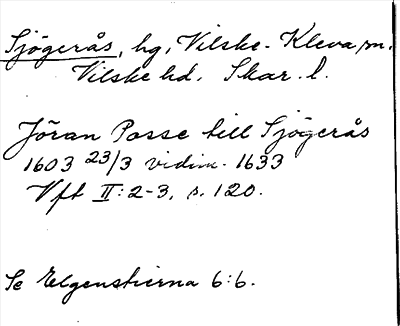 Sjögerås, hg, Vilske-Kleva sn.
Vilske hd. Skar. l.
Jöran Posse till Sjögerås
1603 23/3 vidim. 1633
Vft II:2-3, s. 120.
Se Elgenstierna 6:6.